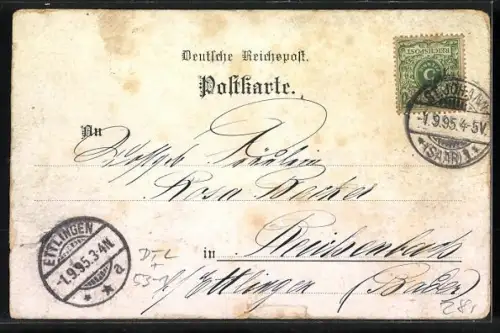 Deutsche Reichspost.
Postkarte.
REICHSPOST
5
ST. JOHANN
-1.9.95.4-5V.
*(SAAR)1*
An
Wohlgeb. Fräulein
Rosa Becker
in Reichenbach
b/ Ettlingen (Baden)
ETTLINGEN
-1.9.95.3-4N
* * a